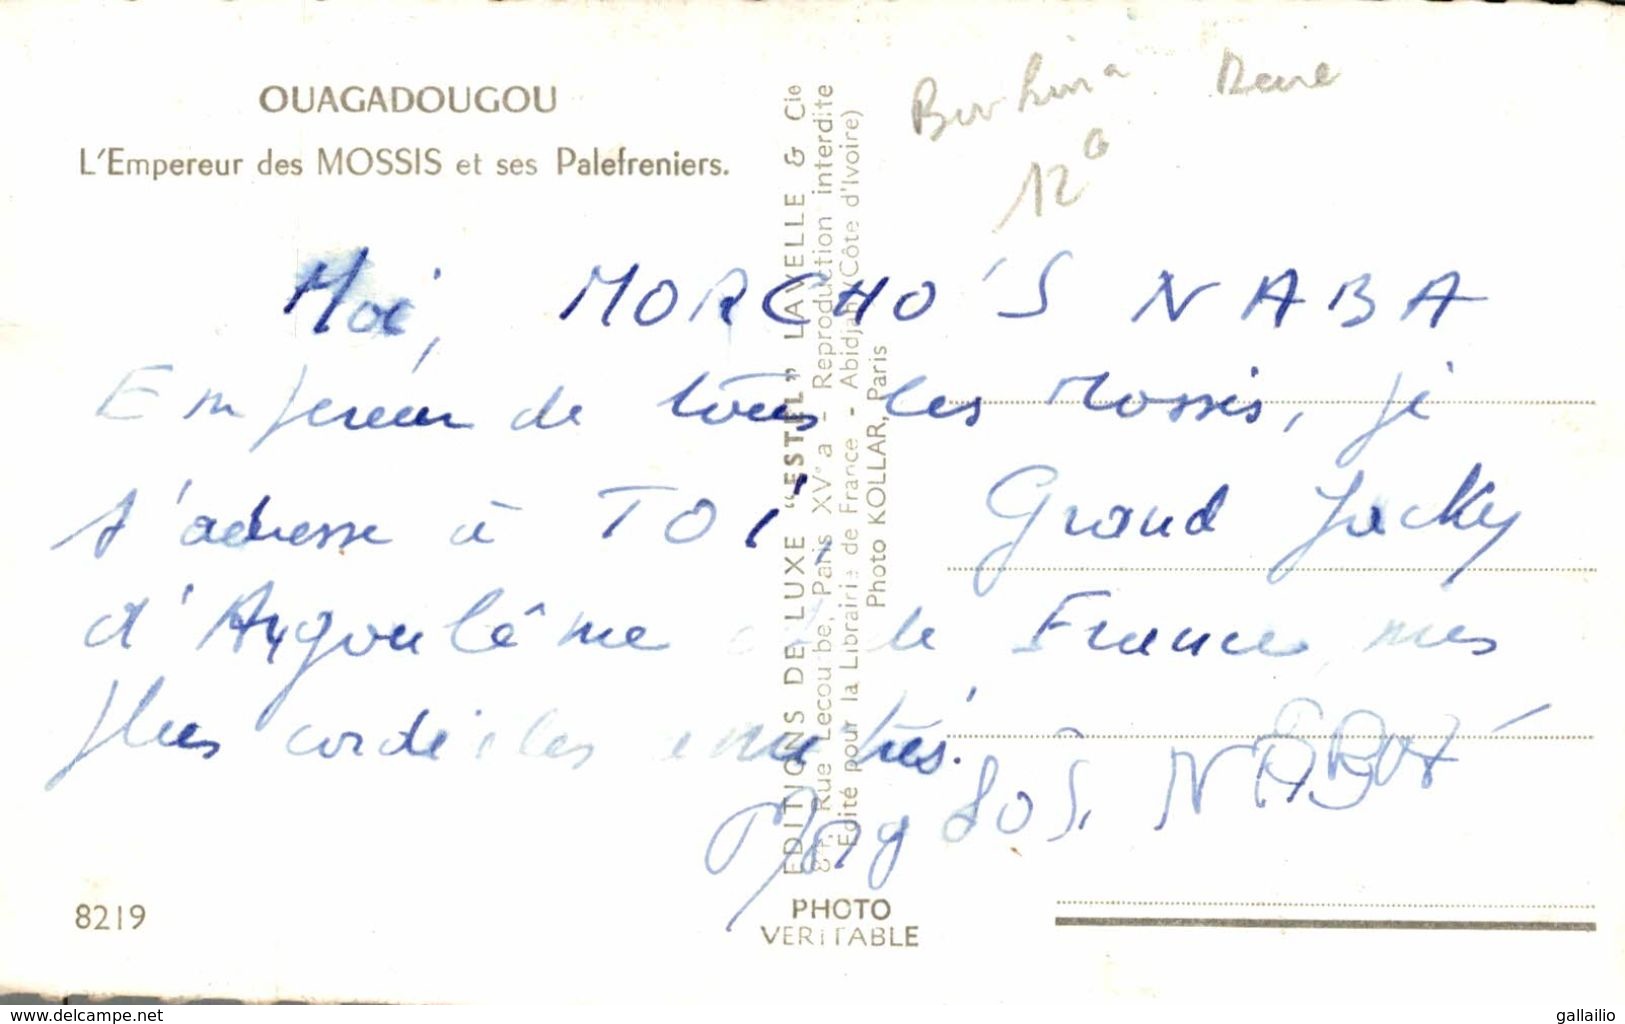 OUAGADOUGOU
L'Empereur des MOSSIS et ses Palefreniers.
Burkina
12
Moi, MORCHO'S NABA
Empereur de tous les Mossis, je
s'adresse à TOI, Grand Jacky
d'Angoulême et de France, mes
plus cordiales amitiés.
NABA
EDITIONS DE LUXE "ESTEL" LAVELLE & Cie
Rue Lecourbe, Paris XVe - Reproduction interdite
Edité pour la Librairie de France - Abidjan (Côte d'Ivoire)
Photo KOLLAR, Paris
8219
PHOTO
VERITABLE
www.delcampe.net
gallailio